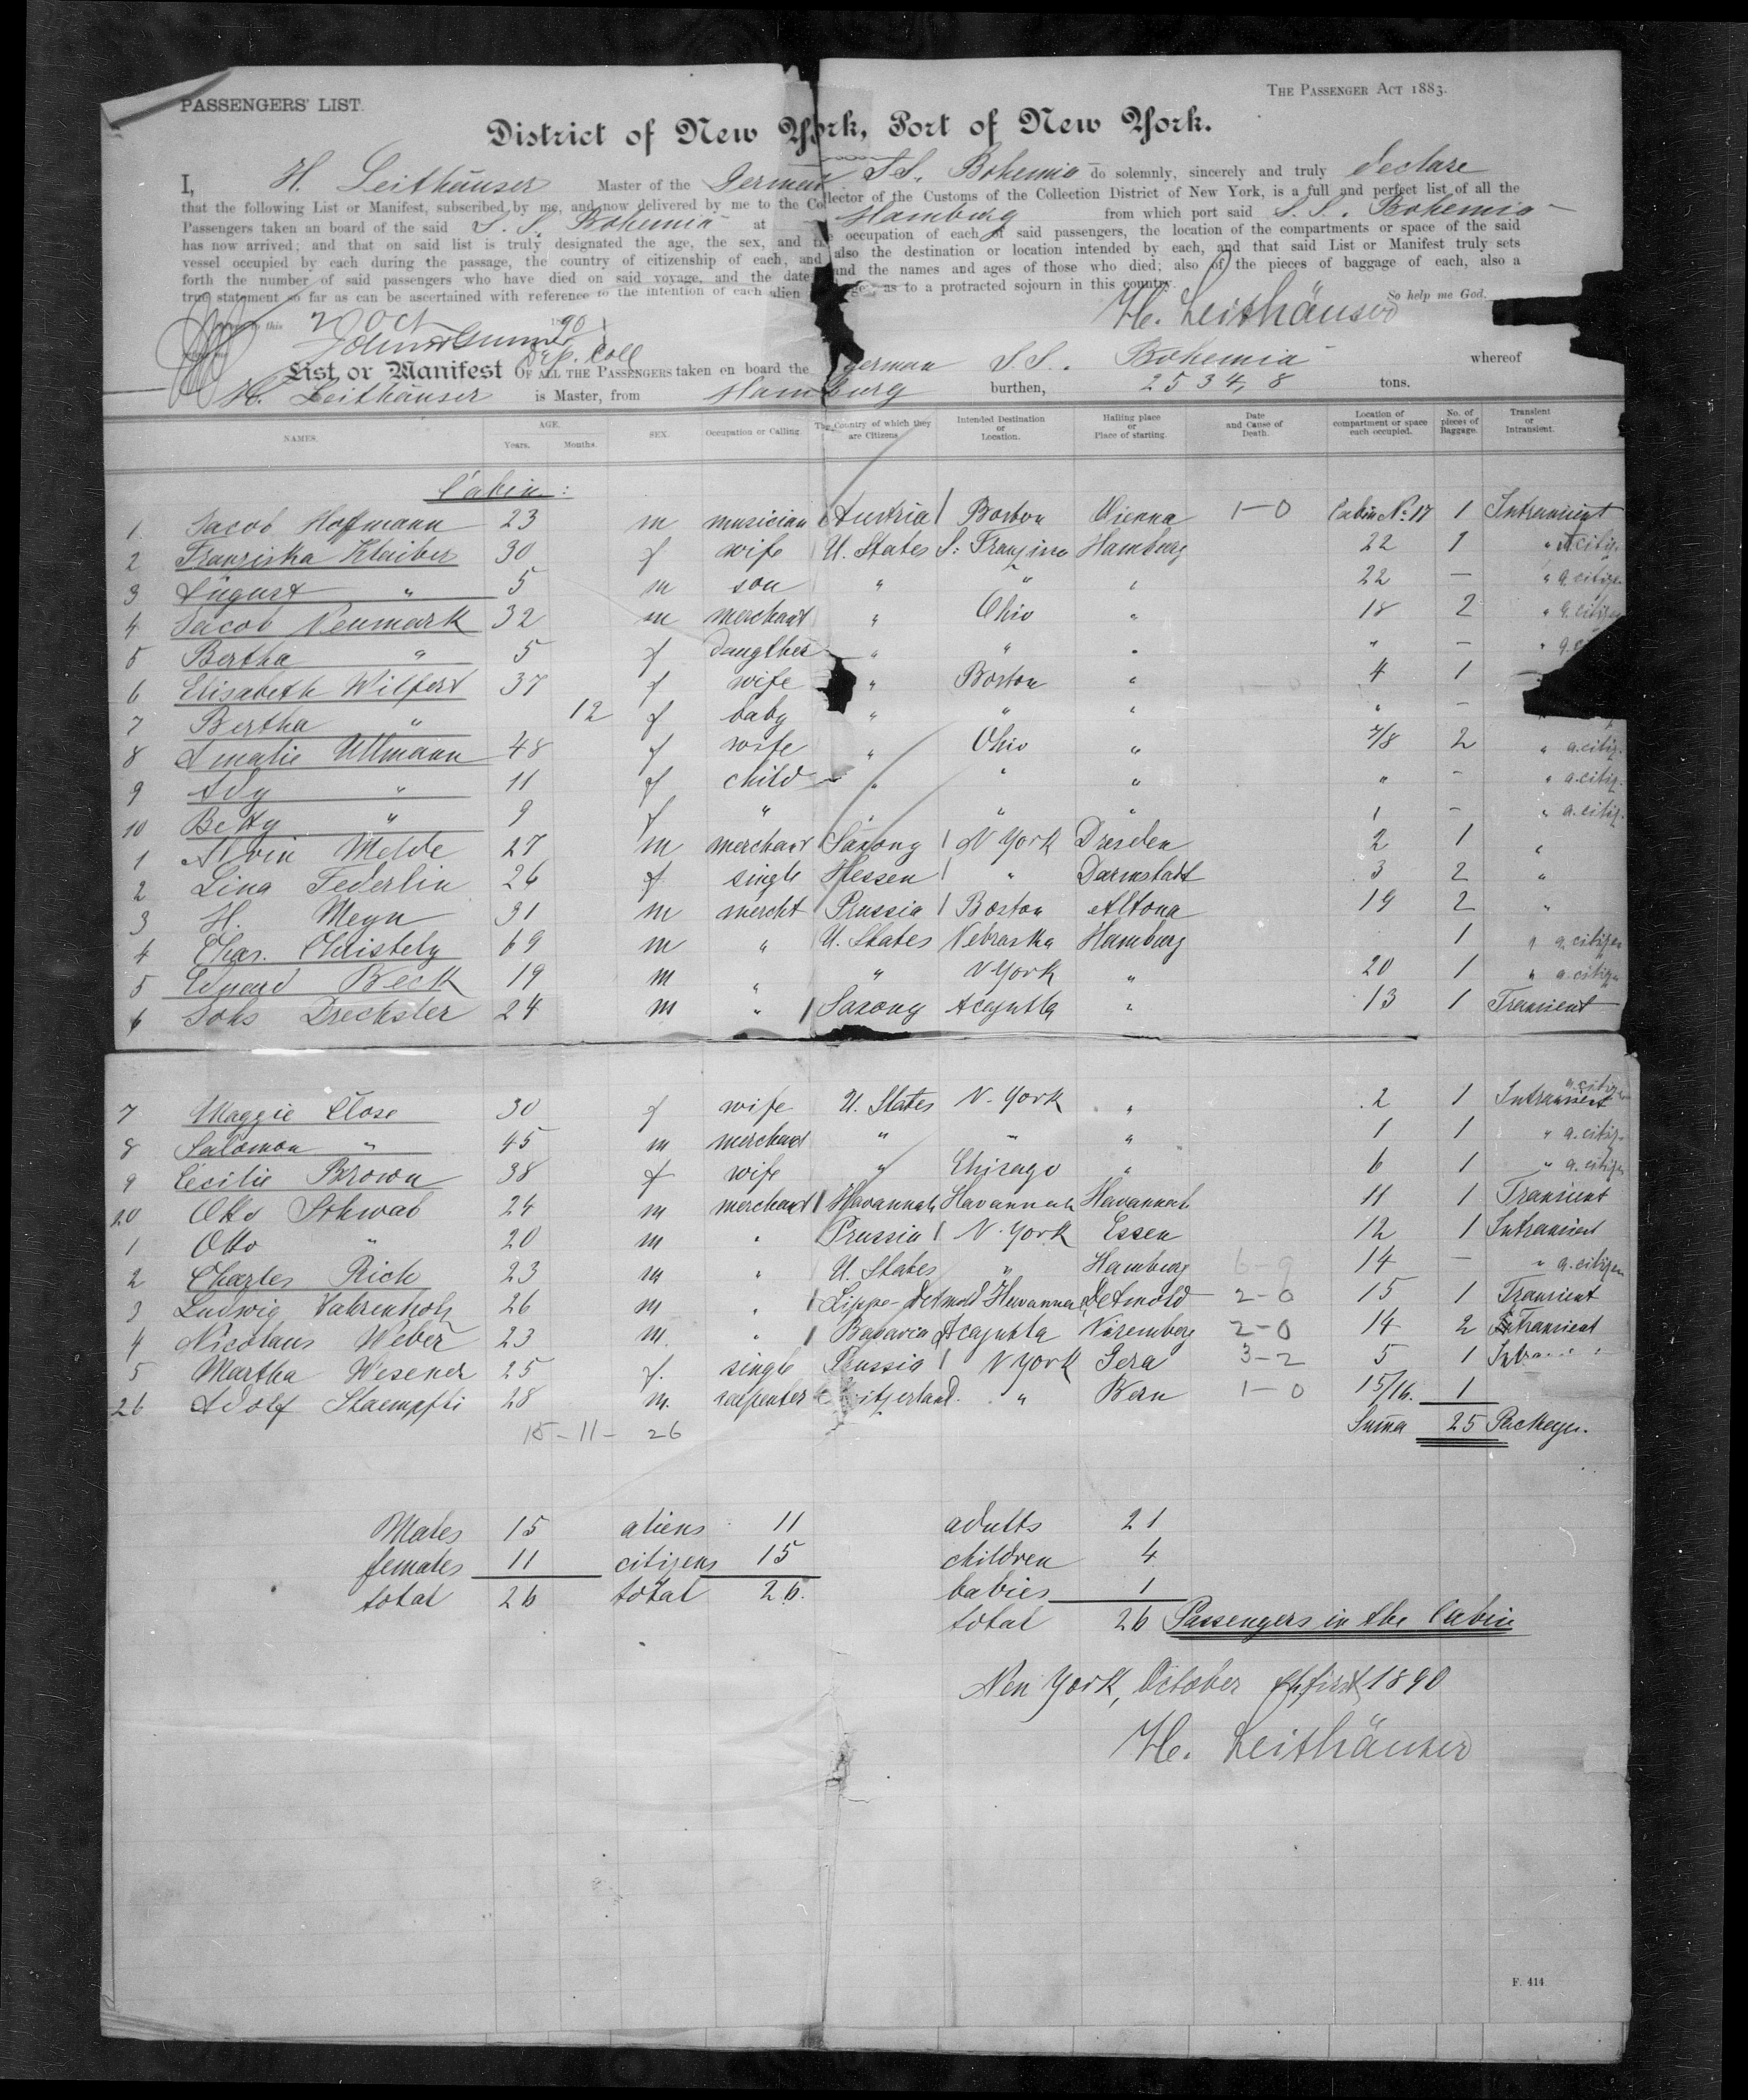 PASSENGERS' LIST.
THE PASSENGER ACT 1883.
District of New York, Port of New York.
I, H. Leithäuser Master of the German S.S. Bohemia do solemnly, sincerely and truly declare
that the following List or Manifest, subscribed by me, and now delivered by me to the Collector of the Customs of the Collection District of New York, is a full and perfect list of all the
Passengers taken an board of the said S. S. Bohemia at Hamburg from which port said S. S. Bohemia
has now arrived; and that on said list is truly designated the age, the sex, and the occupation of each of said passengers, the location of the compartments or space of the said
vessel occupied by each during the passage, the country of citizenship of each, and also the destination or location intended by each, and that said List or Manifest truly sets
forth the number of said passengers who have died on said voyage, and the date and the names and ages of those who died; also of the pieces of baggage of each, also a
true statement so far as can be ascertained with reference to the intention of each alien as to a protracted sojourn in this country.
So help me God.
H. Leithäuser
this 2 Oct 1890
Dep. Coll
List or Manifest OF ALL THE PASSENGERS taken on board the German S.S. Bohemia whereof
H. Leithäuser is Master, from Hamburg burthen, 2534,8 tons.
NAMES. AGE. Years. Months. SEX. Occupation or Calling. The Country of which they are Citizens Intended Destination or Location. Hailing place or Place of starting. Date and Cause of Death. Location of compartment or space each occupied. No. of pieces of Baggage. Transient or Intransient.
Cabin:
1 Jacob Hoffmann 23 m musician Austria Boston Vienna 1-0 Cabin No. 17 1 Intransient
2 Franziska Klaiber 30 f wife U. States S: Franzisco Hamburg 22 1 " a citiz.
3 August " 5 m son " " " 22 — " a. citizen
4 Jacob Neumark 32 m merchant " Ohio " 18 2 " a. citizen
5 Bertha " 5 f daugther " " " " — "
6 Elisabeth Wilfert 37 f wife " Boston " 4 1
7 Bertha " 12 f baby " " " " —
8 Amalie Ullmann 48 f wife " Ohio " 7/8 2 " a. citiz.
9 Ady " 11 f child " " " " — " a. citiz.
10 Betty " 9 f " " " " — " a. citiz.
1 Alvin Melde 27 m merchant Saxony N York Dresden 2 1 "
2 Lina Federlin 26 f single Hessen " Darmstadt 3 2 "
3 H. Meyn 31 m mercht Prussia Boston Altona 19 2 "
4 Chas. Christely 69 m " U. States Nebraska Hamburg 1 " a. citizen
5 Eduard Beck 19 m " " N York " 20 1 " a. citizen
6 Johs Drechsler 24 m " Saxony Acajutla " 13 1 Transient
7 Maggie Close 30 f wife U. States N. York " 2 1 Intransient a. citizen
8 Salomon " 45 m merchant " " " 1 1 " a. citiz.
9 Cecilie Brown 38 f wife " Chicago " 6 1 " a. citizen
20 Otto Schwab 24 m merchant Havannah Havannah Havannah 11 1 Transient
1 Otto " 20 m " Prussia N. York Essen 12 1 Intransient
2 Charles Rich 23 m " U. States " Hamburg 6-9 14 — " a. citizen
3 Ludwig Vahrenholz 26 m " Lippe-Detmold Havannah Detmold 2-0 15 1 Transient
4 Nicolaus Weber 23 m " Bavaria Acajutla Nüremberg 2-0 14 2 Transient
5 Martha Wesener 25 f. single Prussia N York Gera 3-2 5 1
26 Adolf Staempfli 28 m. carpenter Switzerland. " Bern 1-0 15/16. 1
15-11-26
Summa 25 Packages.
Males 15 aliens 11 adults 21
females 11 citizens 15 children 4
total 26 total 26. babies 1
total 26 Passengers in the Cabin
New York, October 1890
H. Leithäuser
F. 414